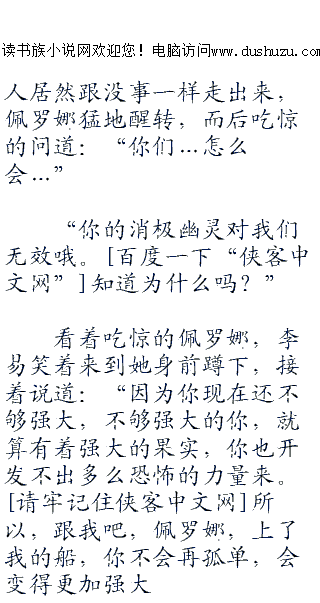 读书族小说网欢迎您！电脑访问www.dushuzu.com
人居然跟没事一样走出来，
佩罗娜猛地醒转，而后吃惊
的问道：“你们…怎么
会…”
“你的消极幽灵对我们
无效哦。[百度一下“侠客中
文网”]知道为什么吗？”
看着吃惊的佩罗娜，李
易笑着来到她身前蹲下，接
着说道：“因为你现在还不
够强大，不够强大的你，就
算有着强大的果实，你也开
发不出多么恐怖的力量来。
[请牢记住侠客中文网]所
以，跟我吧，佩罗娜，上了
我的船，你不会再孤单，会
变得更加强大